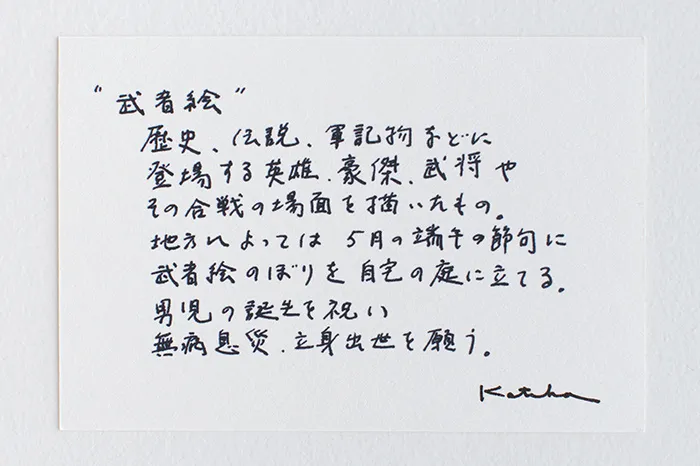 “武者絵”
歴史、伝説、軍記物などに
登場する英雄、豪傑、武将や
その合戦の場面を描いたもの。
地方によっては 5月の端午の節句に
武者絵のぼりを自宅の庭に立てる。
男児の誕生を祝い
無病息災、立身出世を願う。